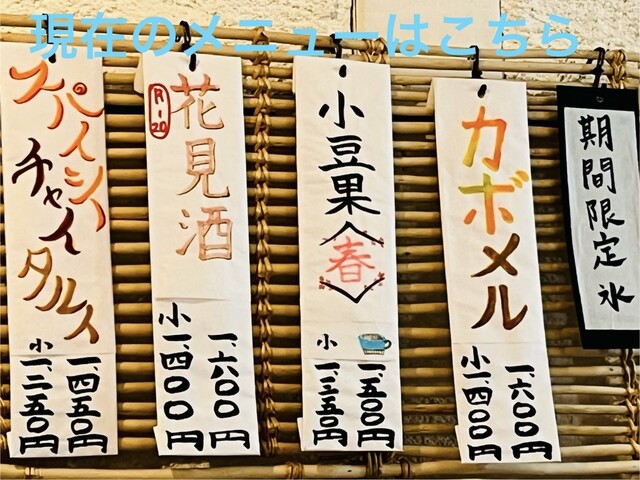 現在のメニューはこちら
期間限定氷
カボメル
一、六〇〇円
小一、四〇〇円
小豆果
〈春〉
一、五〇〇円
小一、三五〇円
花見酒
R-20
一、六〇〇円
小一、四〇〇円
スパイシー
チャイ
タルト
一、四五〇円
小一、二五〇円